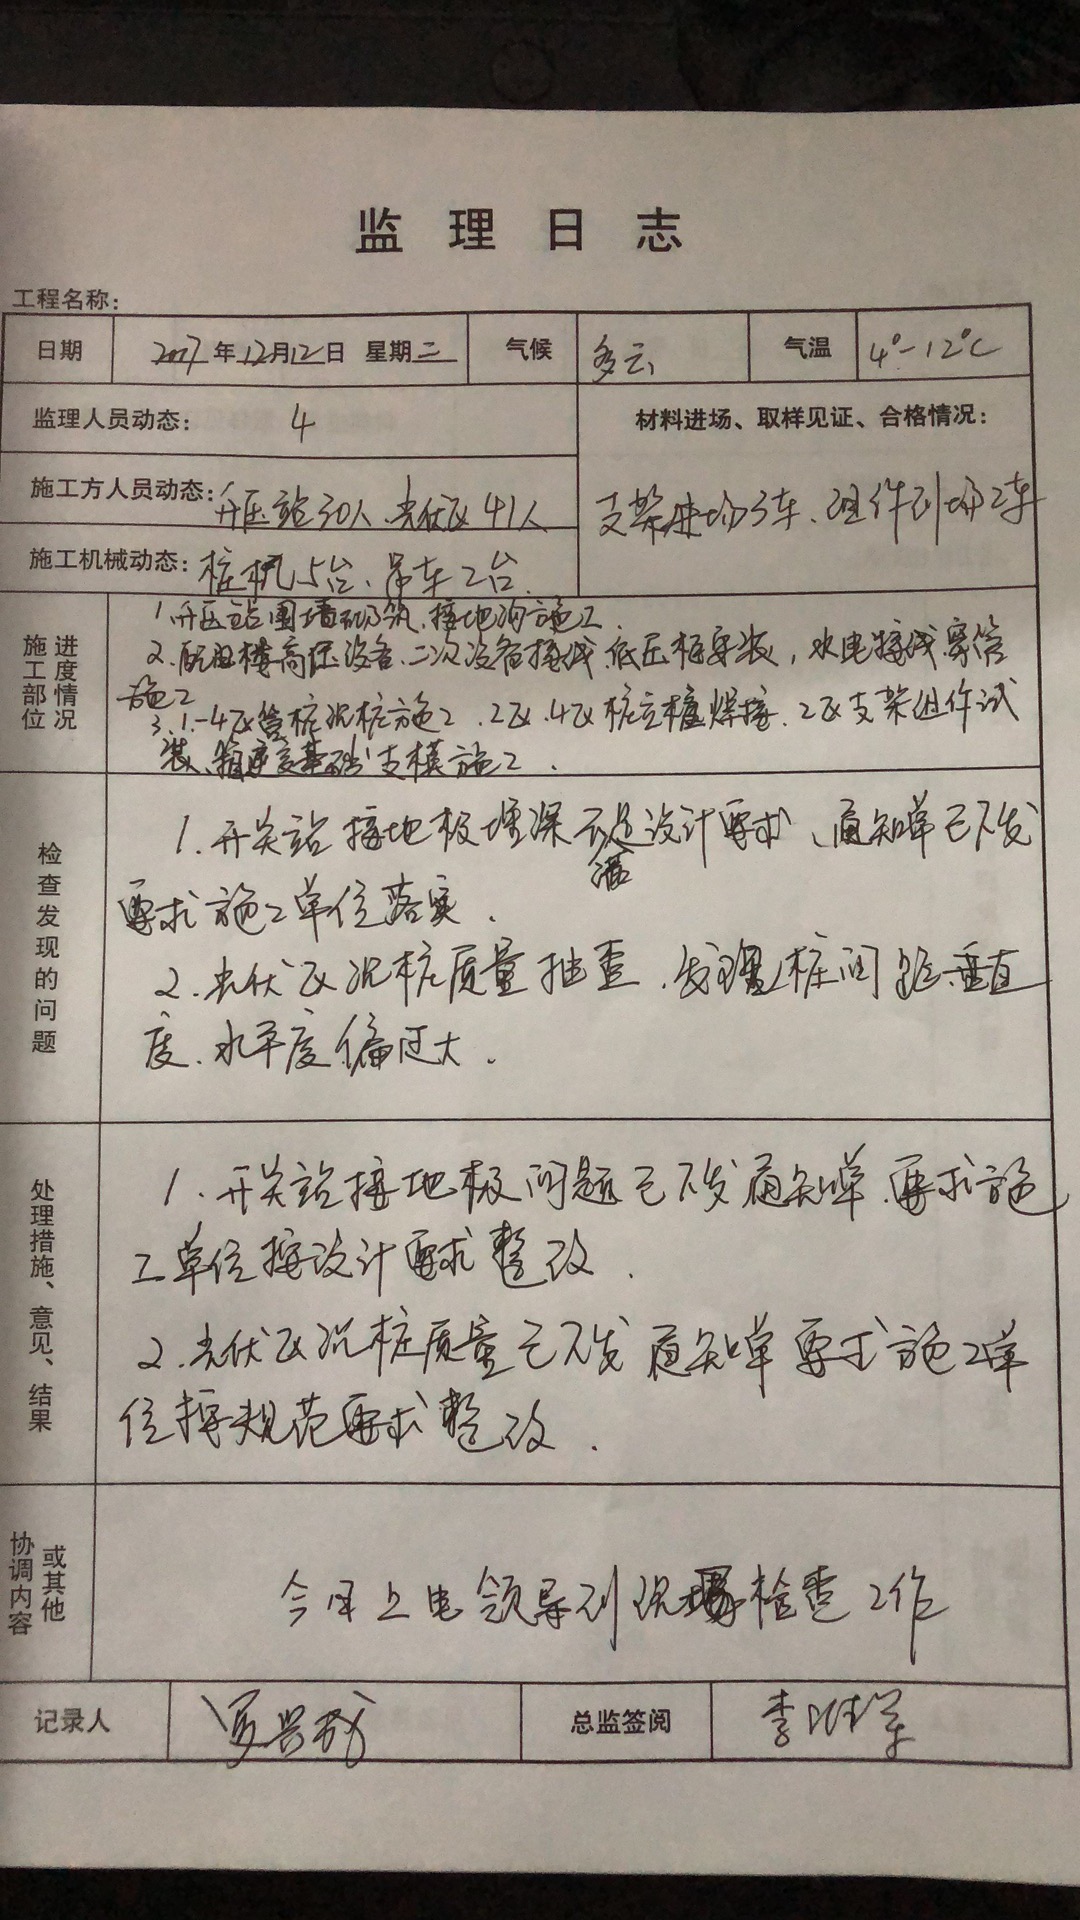 监理日志
工程名称：
日期 2017年12月12日 星期二 气候 多云 气温 4°-12℃
监理人员动态： 4
材料进场、取样见证、合格情况：
施工方人员动态：升压站30人、光伏区41人
支架进场3车、组件到场2车
施工机械动态：桩机5台、吊车2台.
施工部位 进度情况
1.升压站围墙砌筑、接地沟施工.
2.配电楼高压设备、二次设备接线、低压柜安装，水电接线、穿管
施工
3.1-4区管桩沉桩施工.2区.4区桩立柱焊接.2区支架组件试
装、箱变基础支模施工.
检查发现的问题
1.开关站接地极埋深不满足设计要求、通知单已下发
要求施工单位落实.
2.光伏区沉桩质量抽查.发现桩间距、垂直
度.水平度偏过大.
处理措施、意见、结果
1.开关站接地极问题已下发通知单.要求施
工单位按设计要求整改.
2.光伏区沉桩质量已下发通知单要求施工单
位按规范要求整改.
协调内容 或其他
今日上电领导到现场检查工作
记录人 总监签阅 李